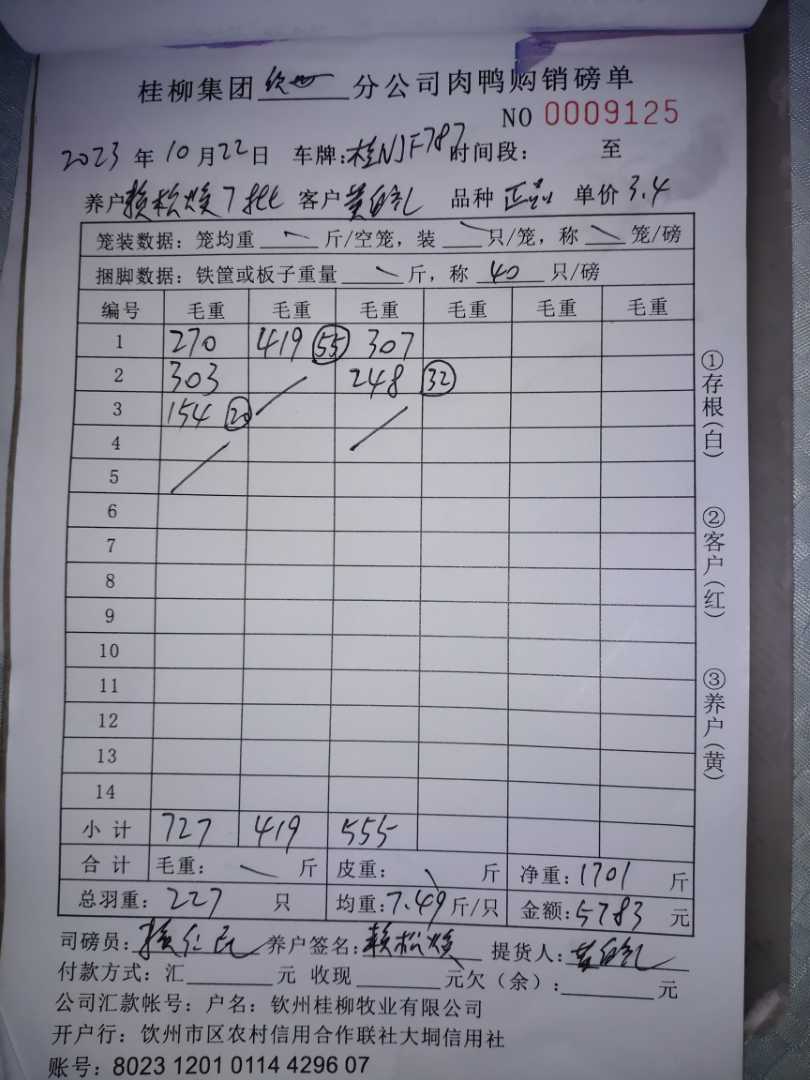 桂柳集团 分公司肉鸭购销磅单
NO 0009125
2023年10月22日 车牌:桂NJF787 时间段: 至
养户赖松焕7批 客户黄 品种正品 单价3.4
笼装数据:笼均重 斤/空笼,装 只/笼,称 笼/磅
捆脚数据:铁筐或板子重量 斤,称 40 只/磅
编号 毛重 毛重 毛重 毛重 毛重 毛重
1 270 419 55 307
2 303 248 32
3 154 20
4
5
6
7
8
9
10
11
12
13
14
小计 727 419 555
合计 毛重: 斤 皮重: 斤 净重:1701 斤
总羽重:227 只 均重:7.49斤/只 金额:5783元
司磅员: 养户签名:赖松焕 提货人:黄
付款方式:汇 元 收现 元欠(余): 元
公司汇款帐号:户名:钦州桂柳牧业有限公司
开户行:钦州市区农村信用合作联社大垌信用社
账号:8023 1201 0114 4296 07
①存根(白)
②客户(红)
③养户(黄)